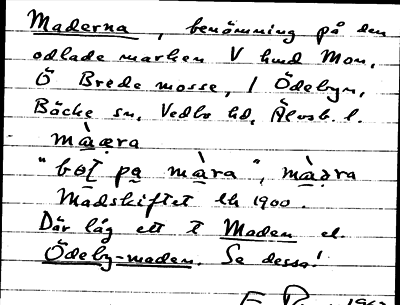 Maderna, benämning på den
odlade marken V hmd Mon,
Ö Brede mosse, / Ödebyn,
Bäcke sn, Vedbo hd, Älvsb. l.
màæra
"bɵt pa màra", màəra
Madskiftet lk 1900.
Där låg ett t Maden el.
Ödeby-maden. Se dessa!